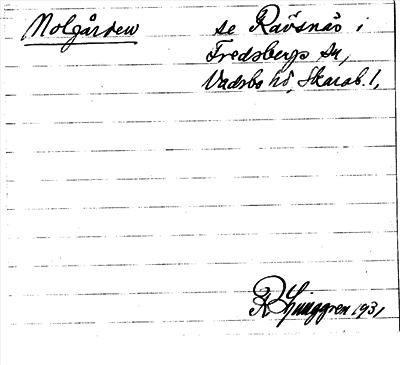 Molgården se Rävsnäs i
Fredsbergs sn,
Vadsbo hd, Skarab. l,
R Ljunggren 1931